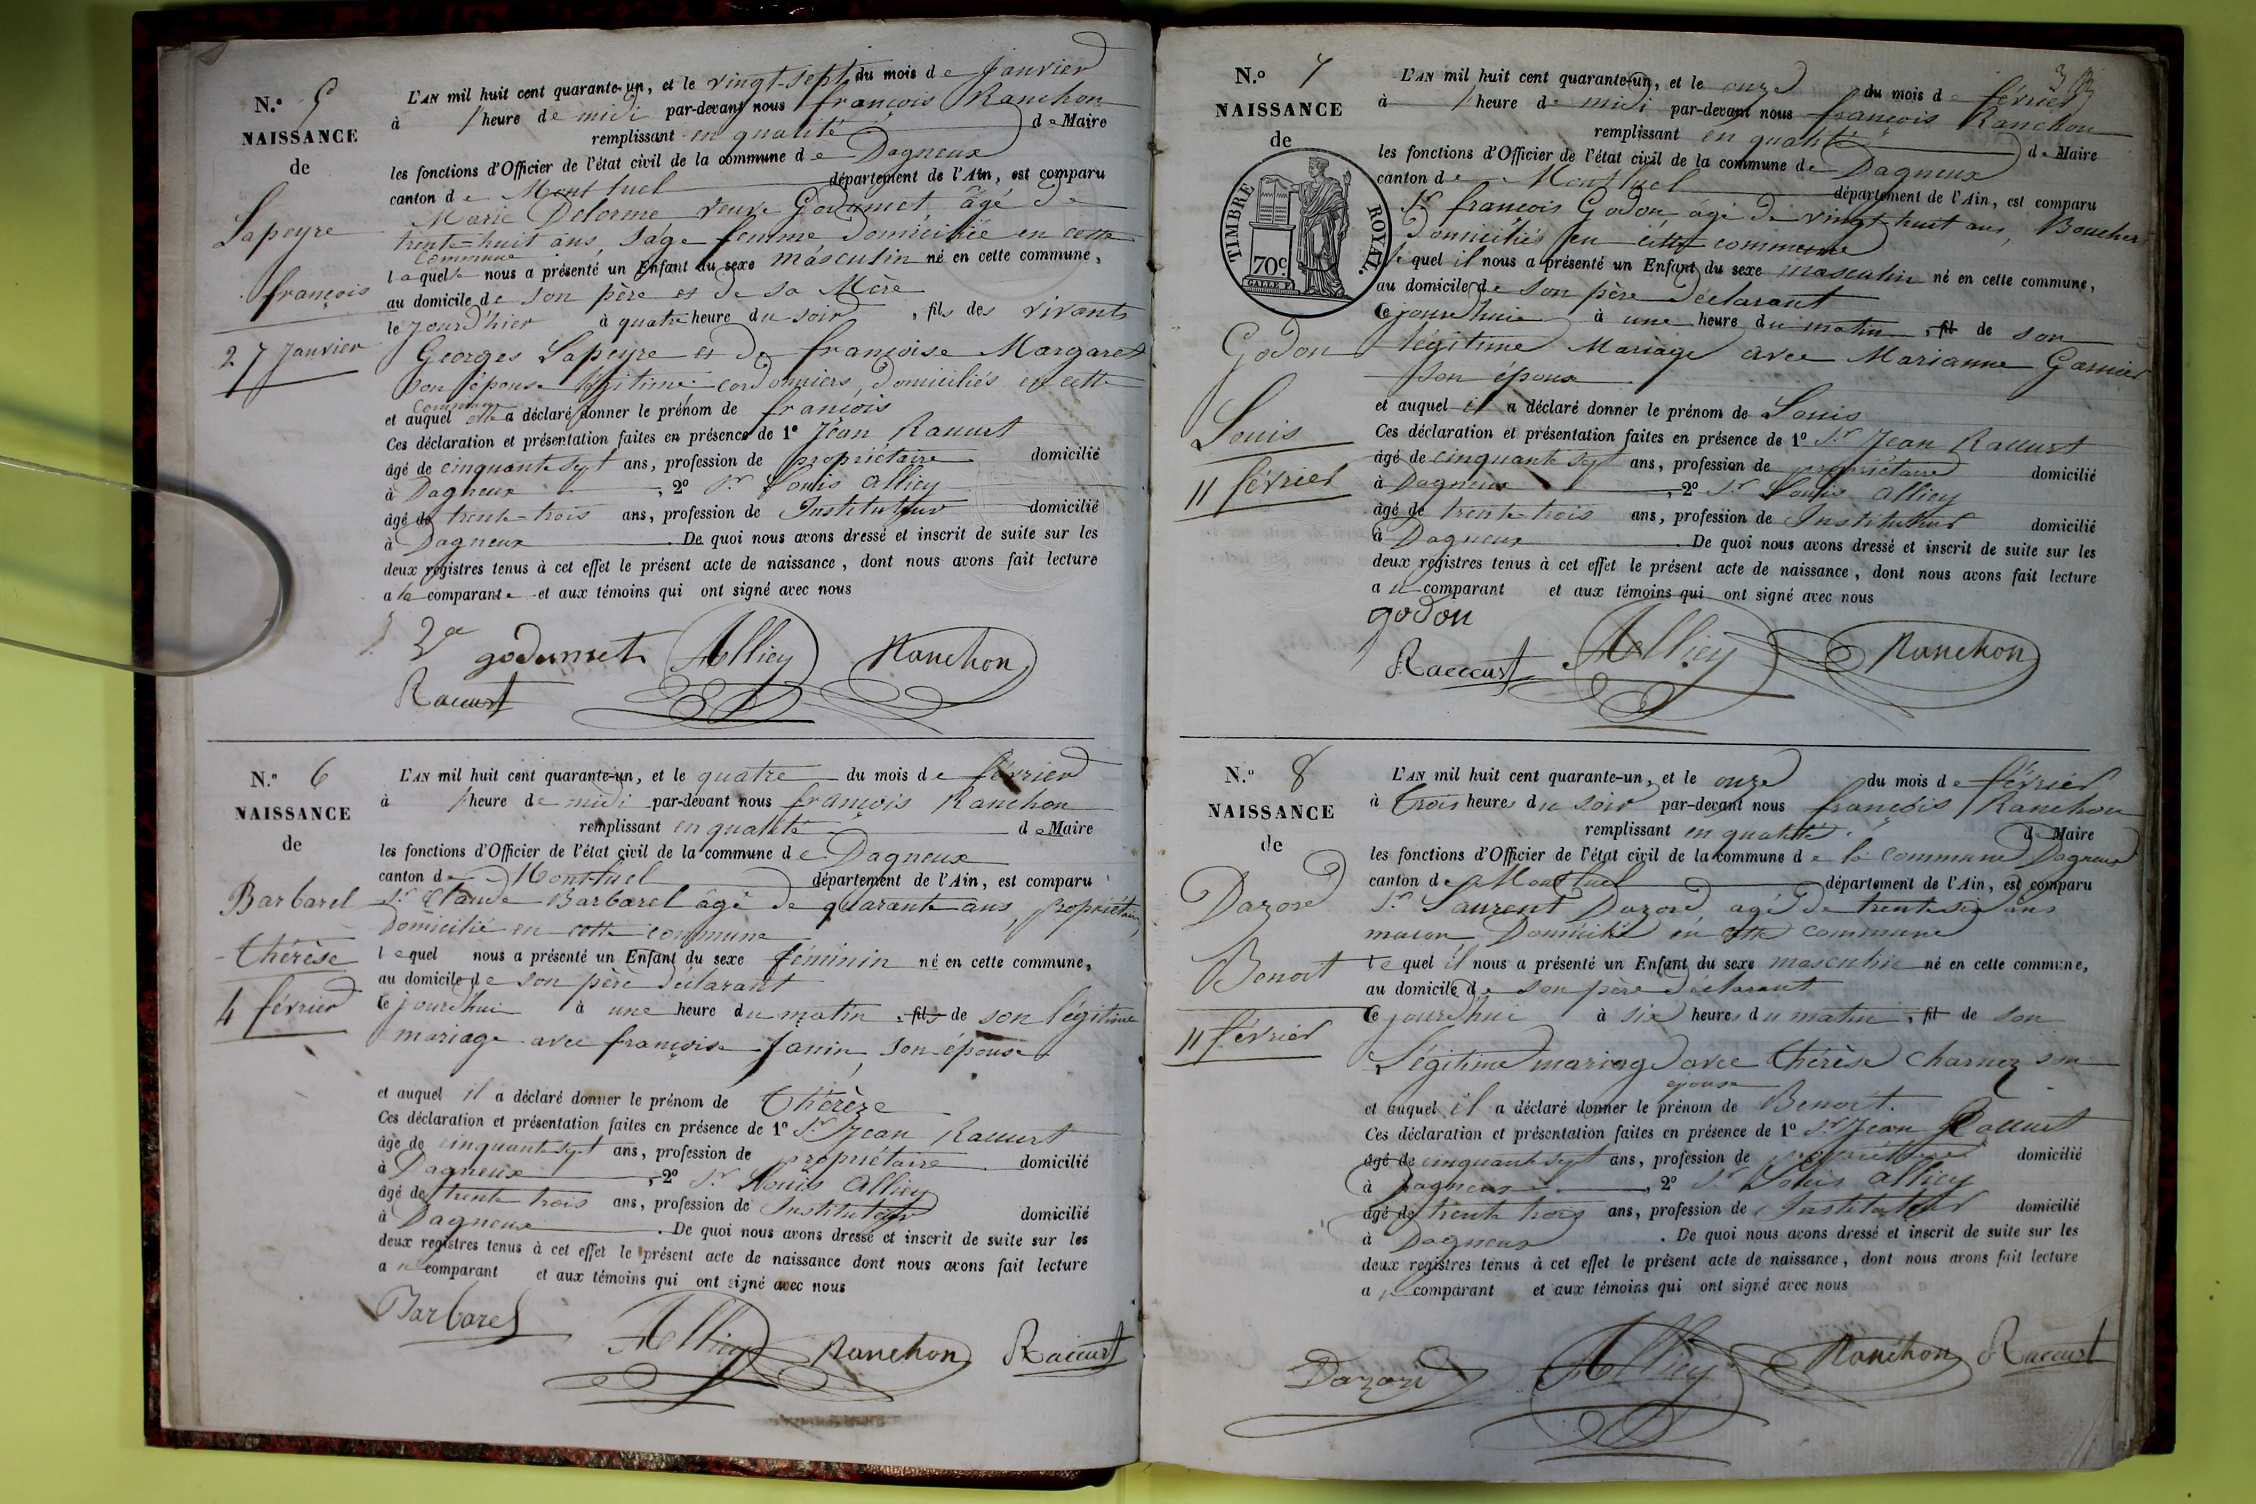 N.° 5
NAISSANCE
de
Lapeyre
françois
27 Janvier
L'AN mil huit cent quarante-un, et le vingt-sept du mois de Janvier
à heure de midi par-devant nous françois Ranchon
remplissant en qualité de Maire
les fonctions d'Officier de l'état civil de la commune de Dagneux
canton de Montluel département de l'Ain, est comparu
Marie Delorme veuve Godumet âgé de
trente-huit ans, sage femme domiciliée en cette
commune
laquelle nous a présenté un Enfant du sexe masculin né en cette commune,
au domicile de son père et de sa Mère
le jourd'hier à quatre heure du soir, fils des vivants
Georges Lapeyre et de françoise Margaret
son épouse légitime cordonniers, domiciliés en cette
commune
et auquel elle a déclaré donner le prénom de françois
Ces déclaration et présentation faites en présence de 1° Jean Raccurt
âgé de cinquante sept ans, profession de propriétaire domicilié
à Dagneux, 2° Sr Louis Alliey
âgé de trente-trois ans, profession de Instituteur domicilié
à Dagneux. De quoi nous avons dressé et inscrit de suite sur les
deux registres tenus à cet effet le présent acte de naissance, dont nous avons fait lecture
a la comparante et aux témoins qui ont signé avec nous
Ve godumet Alliey Ranchon
Raccurt
N.° 6
NAISSANCE
de
Barbarel
Thérèse
4 février
L'AN mil huit cent quarante-un, et le quatre du mois de février
à heure de midi par-devant nous françois Ranchon
remplissant en qualité de Maire
les fonctions d'Officier de l'état civil de la commune de Dagneux
canton de Montluel département de l'Ain, est comparu
Sr Claude Barbarel âgé de quarante ans, propriétaire
domicilié en cette commune
lequel nous a présenté un Enfant du sexe féminin né en cette commune,
au domicile de son père déclarant
ce jourd'hui à une heure du matin, fils de son légitime
mariage avec françoise Janin, son épouse
et auquel il a déclaré donner le prénom de Thérèze
Ces déclaration et présentation faites en présence de 1° Sr Jean Raccurt
âgé de cinquante sept ans, profession de propriétaire domicilié
à Dagneux, 2° Sr Louis Alliey
âgé de trente trois ans, profession de Instituteur domicilié
à Dagneux. De quoi nous avons dressé et inscrit de suite sur les
deux registres tenus à cet effet le présent acte de naissance dont nous avons fait lecture
a u comparant et aux témoins qui ont signé avec nous
Barbarel Alliey Ranchon Raccurt
N.° 7
NAISSANCE
de
TIMBRE ROYAL.
70c.
Godon
Louis
11 février
L'AN mil huit cent quarante-un, et le onze du mois de février
à heure de midi par-devant nous françois Ranchon
remplissant en qualité de Maire
les fonctions d'Officier de l'état civil de la commune de Dagneux
canton de Montluel département de l'Ain, est comparu
Sr françois Godon agé de vingt-huit ans, Boucher
domiciliés en cette commune
lequel il nous a présenté un Enfant du sexe masculin né en cette commune,
au domicile de son père déclarant
Ce jourd'huie à une heure du matin, fil de son
légitime Mariage avec Marianne Garnier
son épouse
et auquel il a déclaré donner le prénom de Louis
Ces déclaration et présentation faites en présence de 1° Sr Jean Raccurt
âgé de cinquante sept ans, profession de propriétaire domicilié
à Dagneux, 2° Sr Louis Alliey
âgé de trente-trois ans, profession de Instituteur domicilié
à Dagneux. De quoi nous avons dressé et inscrit de suite sur les
deux registres tenus à cet effet le présent acte de naissance, dont nous avons fait lecture
a u comparant et aux témoins qui ont signé avec nous
godon
Raccurt Alliey Ranchon
N.° 8
NAISSANCE
de
Dazord
Benoit
11 février
L'AN mil huit cent quarante-un, et le onze du mois de février
à trois heures du soir par-devant nous françois Ranchon
remplissant en qualité de Maire
les fonctions d'Officier de l'état civil de la commune de la commune Dagneux
canton de Montluel département de l'Ain, est comparu
Sr Laurent Dazord agé de trente six ans
macon Domicilié en cette commune
le quel il nous a présenté un Enfant du sexe masculin né en cette commune,
au domicile de son père déclarant
Ce jourd'hui à six heures du matin, fil de son
Légitime mariage avec Thérèse Charnez son
épouse
et auquel il a déclaré donner le prénom de Benoit.
Ces déclaration et présentation faites en présence de 1° Sr Jean Raccurt
âgé de cinquante sept ans, profession de propriétaire domicilié
à Dagneux, 2° Sr Louis Alliey
âgé de trente trois ans, profession de Instituteur domicilié
à Dagneux. De quoi nous avons dressé et inscrit de suite sur les
deux registres tenus à cet effet le présent acte de naissance, dont nous avons fait lecture
a u comparant et aux témoins qui ont signé avec nous
Dazord Alliey Ranchon Raccurt